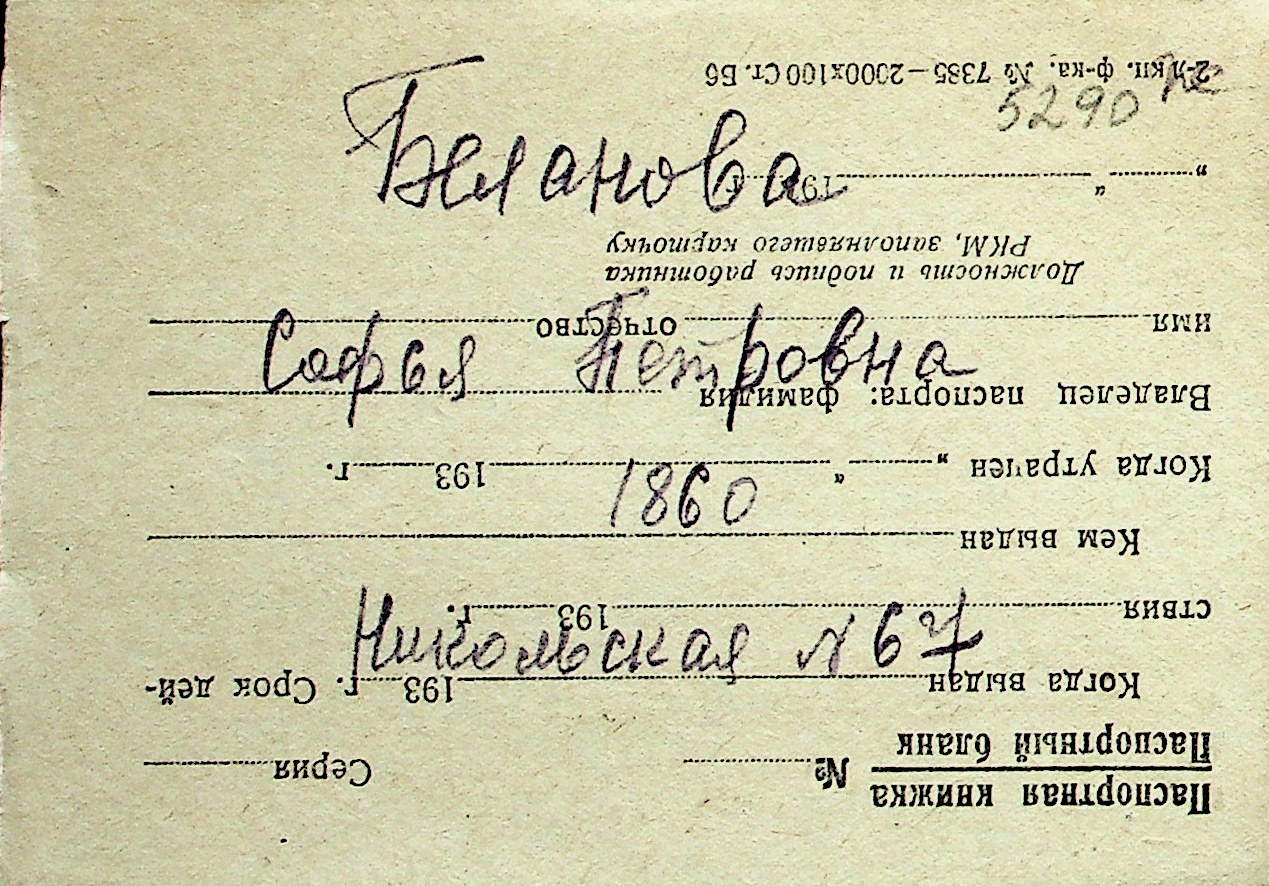 Беланова
Софья Петровна
1860
Никольская № 67
5290
Паспортная книжка
Паспортный бланк
№ Серия
Когда выдан 193 г. Срок дей-
ствия 193 г.
Кем выдан
Когда утрачен „ “ 193 г.
Владелец паспорта: фамилия
имя отчество
Должность и подпись работника
РКМ, заполнявшего карточку
„ “ 193 г.
2-я кн. ф-ка. № 7385—2000х100 Ст. Б6